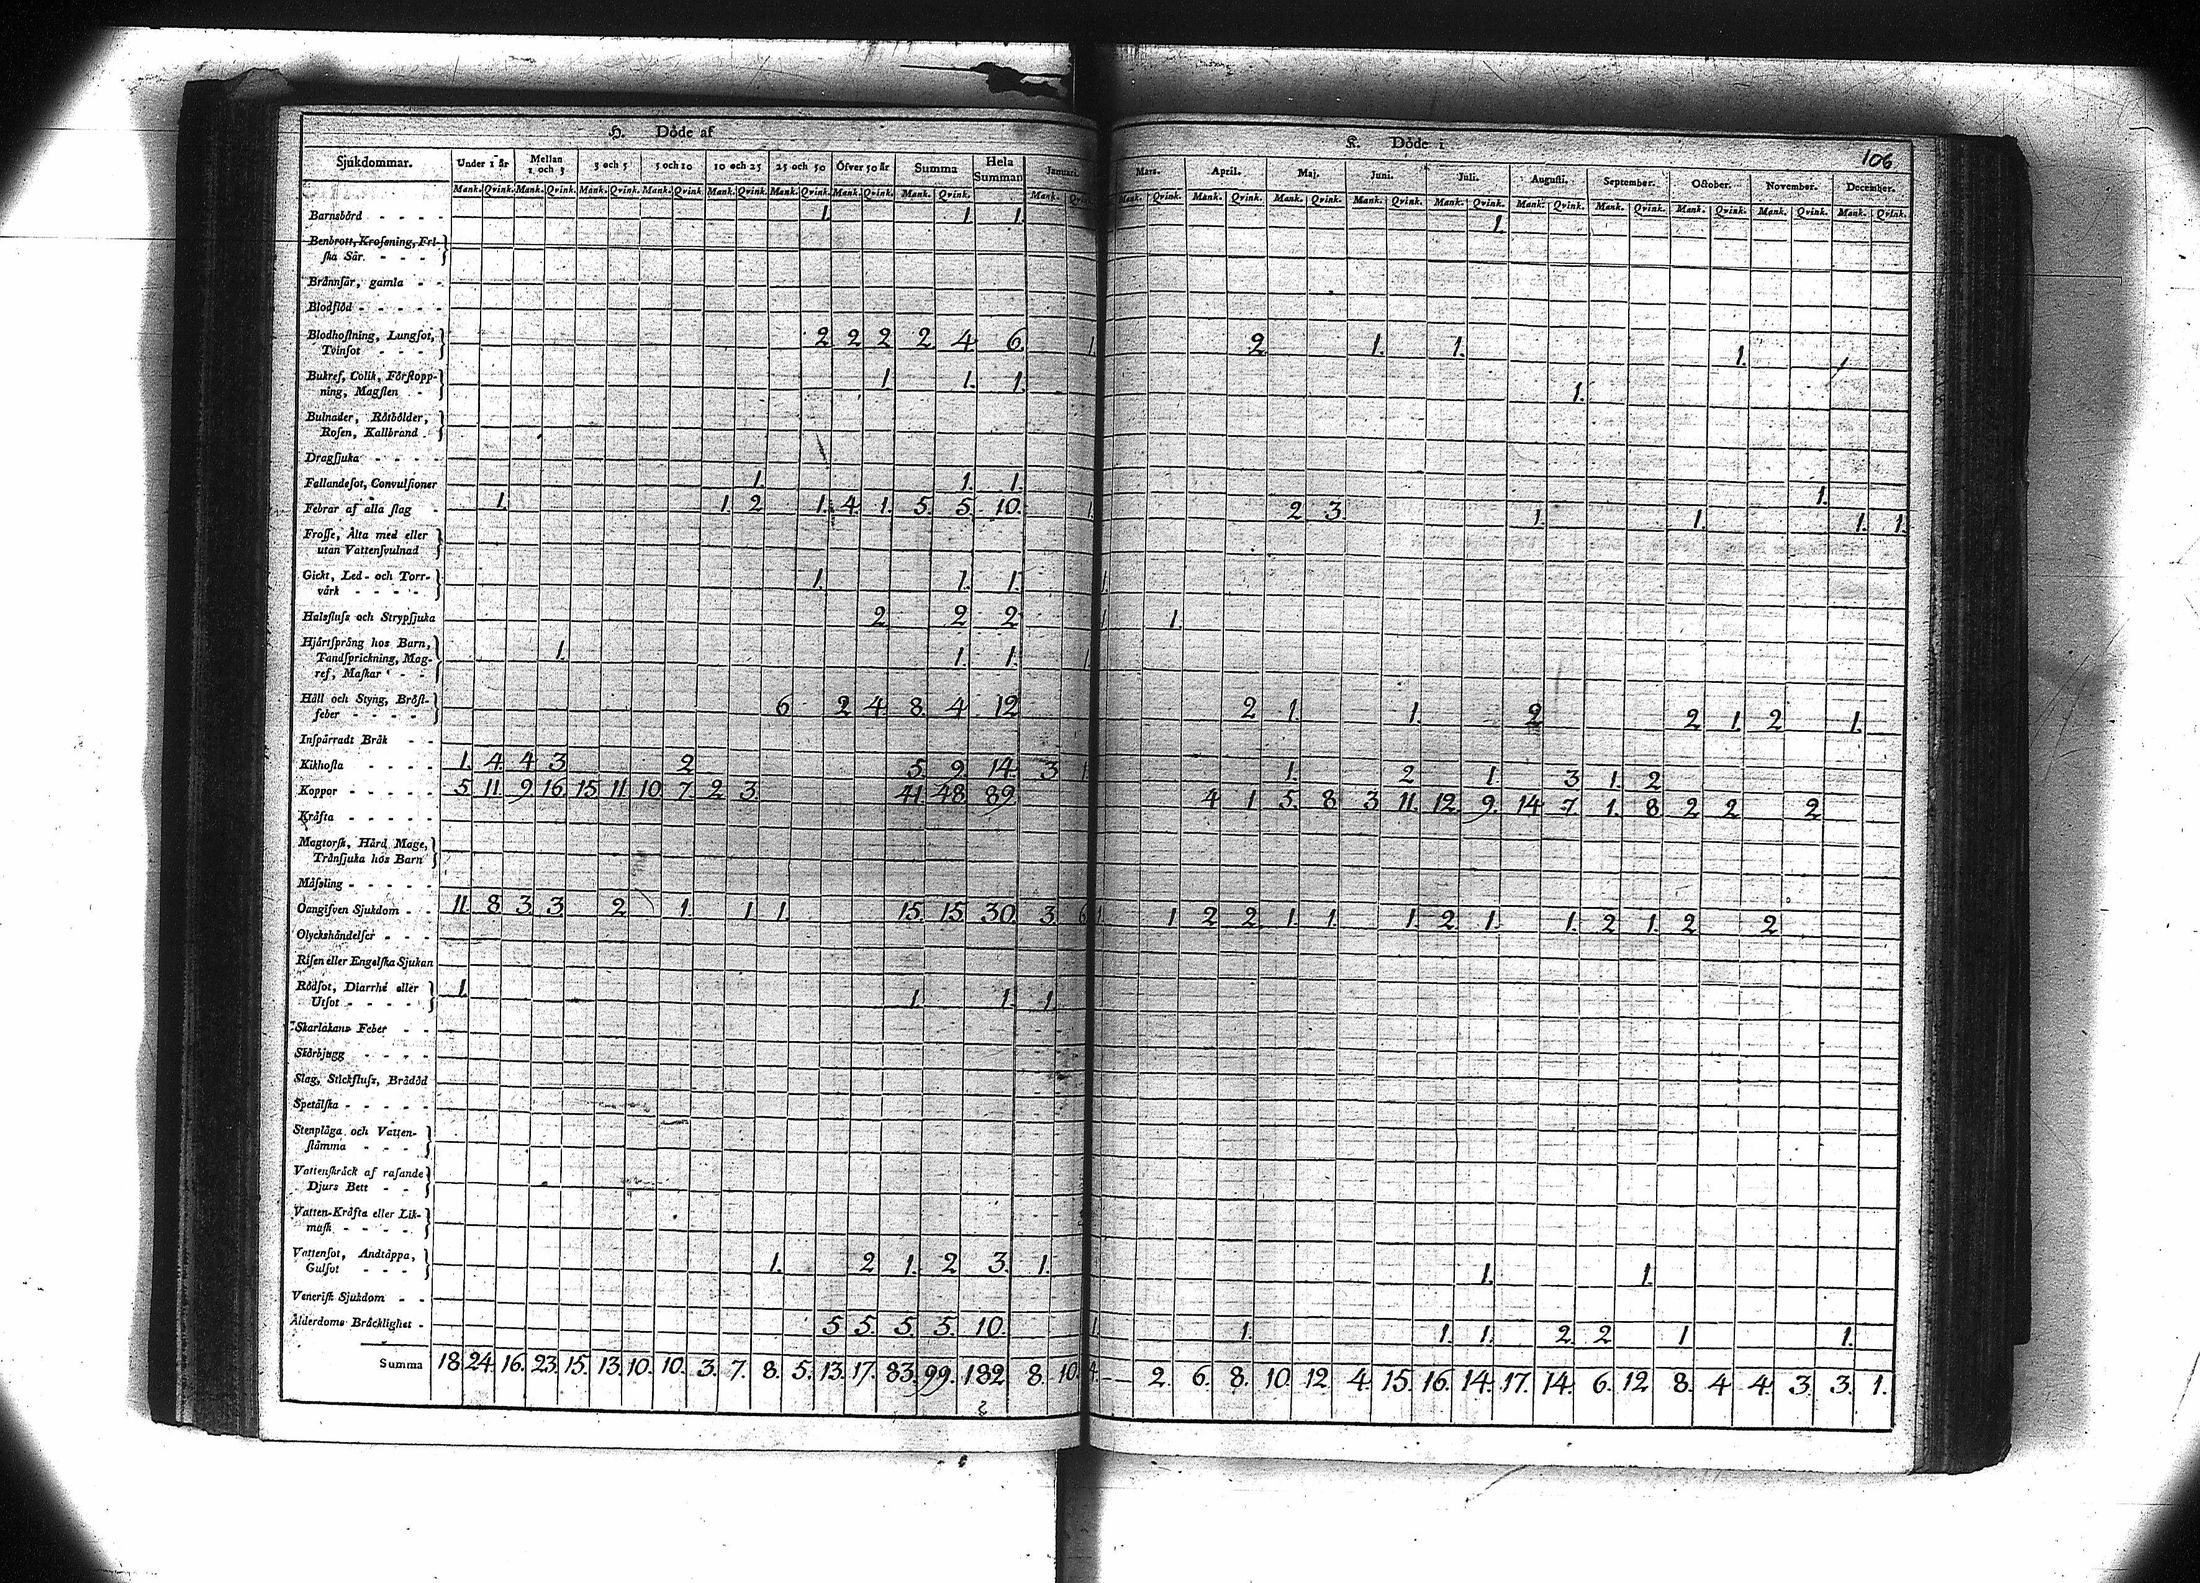 H. Döde af
K. Döde i
106
Sjukdommar. Under 1 år Mellan 1 och 3 3 och 5 5 och 10 10 och 25 25 och 50 Öfver 50 år Summa Hela Summan Januari. Mars. April. Maj. Juni. Juli. Augusti. September. October. November. December.
Mank. Qvink. Mank. Qvink. Mank. Qvink. Mank. Qvink. Mank. Qvink. Mank. Qvink. Mank. Qvink. Mank. Qvink. Mank. Mank. Qvink. Mank. Qvink. Mank. Qvink. Mank. Qvink. Mank. Qvink. Mank. Qvink. Mank. Qvink. Mank. Qvink. Mank. Qvink. Mank. Qvink.
Barnsbörd - - - - 1. 1. 1. 1.
Benbrott, Krossning, Fri-
ska Sår. - - -
Brännsår, gamla - -
Blodflöd - - - - -
Blodhostning, Lungsot, 2 2 2 2 4 6. 1. 2 1. 1. 1. 1
Tvinsot - - -
Bukref, Colik, Förstopp- 1 1. 1. 1.
ning, Magsten -
Bulnader, Rötbölder,
Rosen, Kallbrand -
Dragsjuka - - - -
Fallandesot, Convulsioner 1. 1. 1. 1.
Febrar af alla slag - 1. 1. 2 1. 4. 1. 5. 5. 10. 1. 2 3. 1. 1. 1. 1.
Frosse, Älta med eller
utan Vattensvulnad
Gickt, Led- och Torr- 1. 1. 1. 1.
värk - - - -
Halsfluss och Strypsjuka 2 2 2 1 1.
Hjärtsprång hos Barn, 1. 1. 1. 1.
Tandsprickning, Mag-
ref, Maskar - -
Håll och Styng, Bröst- 6 2 4 8. 4 12 2 1. 1. 2 2 1. 2 1.
feber - - - -
Inspärradt Bråk - -
Kikhosta - - - - 1. 4. 4 3 2 5. 9. 14. 3 1. 1. 2 1. 3 1. 2
Koppor - - - - - 5. 11. 9 16 15 11 10 7. 2 3. 41 48 89 4 1 5. 8. 3 11. 12 9. 14 7. 1. 8 2 2 2
Kräfta - - - - -
Magtorsk, Hård Mage,
Trånsjuka hos Barn
Mässling - - - - -
Oangifven Sjukdom - - 11. 8 3 3 2 1. 1 1. 15. 15 30. 3. 6 1. 1 2 2 1. 1. 1. 2 1. 1. 2 1. 2 2
Olyckshändelser - - -
Risen eller Engelska Sjukan
Rödsot, Diarrhé eller 1. 1. 1. 1.
Utsot - - - -
Skarlakans Feber - -
Skörbjugg - - - -
Slag, Stickfluss, Brådöd
Spetälska - - - - -
Stenplåga och Vatten-
stämma - - -
Vattenskräck af rasande
Djurs Bett - -
Vatten-Kräfta eller Lik-
mask - - - -
Vattensot, Andtäppa, 1. 2 1. 2 3. 1. 1. 1.
Gulsot - - -
Venerisk Sjukdom - -
Ålderdoms Bräcklighet - 5 5. 5. 5. 10. 1. 1. 1. 1. 2. 2 1 1.
Summa 18. 24. 16. 23. 15. 13. 10. 10. 3. 7. 8. 5. 13. 17. 83. 99. 182 8. 10. 4. 2. 6. 8. 10. 12. 4. 15. 16. 14. 17. 14. 6. 12 8. 4 4. 3. 3. 1.